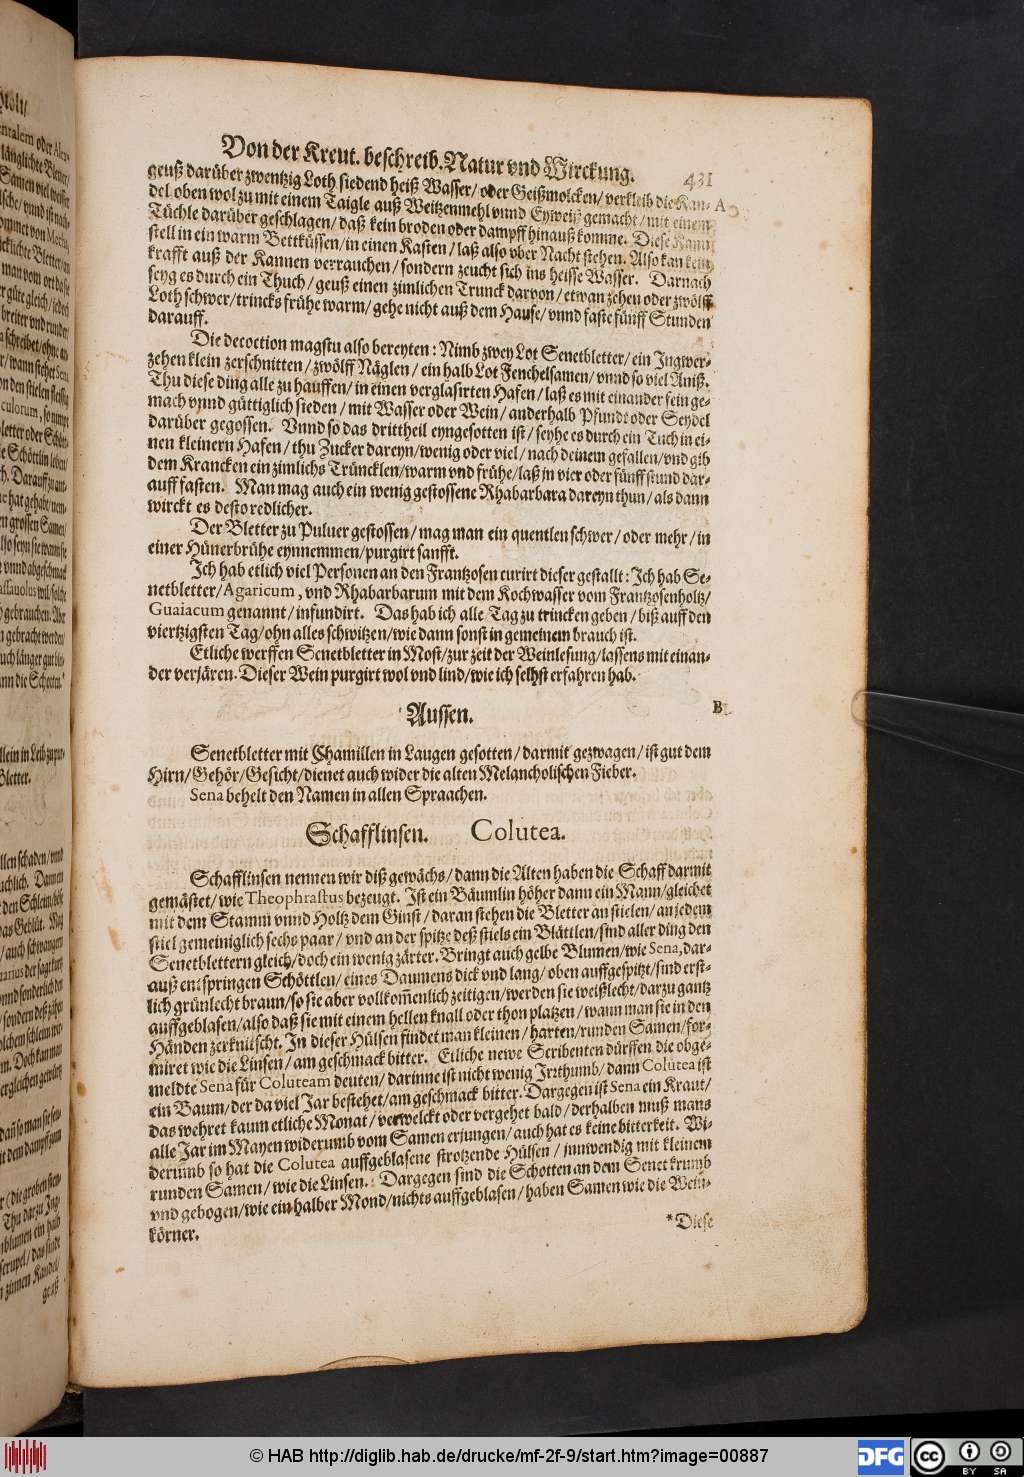 Von der Kreut. beschreib. Natur vnd Wirckung. 431
geuß darüber zwentzig Loth siedend heiß Wasser/ oder Geißmolcken/ verkleib die Kan- A
del oben wol zu mit einem Taigle auß Weitzenmehl vnnd Eyweiß gemacht/ mit einem
Tüchle darüber geschlagen/ daß kein broden oder dampff hinauß komme. Diese Kann
stell in ein warm Bettküssen/ in einen Kasten/ laß also vber Nacht stehen. Also kan kein
krafft auß der Kannen verrauchen/ sondern zeucht sich ins heisse Wasser. Darnach
seyg es durch ein Thuch/ geuß einen zimlichen Trunck darvon/ etwan zehen oder zwölff
Loth schwer/ trincks frühe warm/ gehe nicht auß dem Hause/ vnnd faste fünff Stunden
darauff.
Die decoction magstu also bereyten: Nimb zwey Lot Senetbletter/ ein Jngwer-
zehen klein zerschnitten/ zwölff Näglen/ ein halb Lot Fenchelsamen/ vnnd so viel Aniß.
Thu diese ding alle zu hauffen/ in einen verglasirten Hafen/ laß es mit einander sein ge-
mach vnnd güttiglich sieden/ mit Wasser oder Wein/ anderhalb Pfundt oder Seydel
darüber gegossen. Vnnd so das drittheil eyngesotten ist/ seyhe es durch ein Tuch in ei-
nen kleinern Hafen/ thu Zucker dareyn/ wenig oder viel/ nach deinem gefallen/ vnd gib
dem Krancken ein zimlichs Trüncklen/ warm vnd frühe/ laß jn vier oder fünff stund dar-
auff fasten. Man mag auch ein wenig gestossene Rhabarbara dareyn thun/ als dann
wirckt es desto redlicher.
Der Bletter zu Puluer gestossen/ mag man ein quentlen schwer/ oder mehr/ in
einer Hünerbrühe eynnemmen/ purgirt sanfft.
Jch hab etlich viel Personen an den Frantzosen curirt dieser gestallt: Jch hab Se-
netbletter/ Agaricum, vnd Rhabarbarum mit dem Kochwasser vom Frantzosenholtz/
Guaiacum genannt/ infundirt. Das hab ich alle Tag zu trincken geben/ biß auff den
viertzigsten Tag/ ohn alles schwitzen/ wie dann sonst in gemeinem brauch ist.
Etliche werffen Senetbletter in Most/ zur zeit der Weinlesung/ lassens mit einan-
der verjären. Dieser Wein purgirt wol vnd lind/ wie ich selbst erfahren hab.
Aussen. B
Senetbletter mit Chamillen in Laugen gesotten/ darmit gezwagen/ ist gut dem
Hirn/ Gehör/ Gesicht/ dienet auch wider die alten Melancholischen Fieber.
Sena behelt den Namen in allen Spraachen.
Schafflinsen. Colutea.
Schafflinsen nennen wir diß gewächs/ dann die Alten haben die Schaff darmit
gemästet/ wie Theophrastus bezeugt. Ist ein Bäumlin höher dann ein Mann/ gleichet
mit dem Stamm vnnd Holtz dem Ginst/ daran stehen die Bletter an stielen/ an jedem
stiel gemeiniglich sechs paar/ vnd an der spitze deß stiels ein Blättlen/ sind aller ding den
Senetblettern gleich/ doch ein wenig zärter. Bringt auch gelbe Blumen/ wie Sena, dar-
auß entspringen Schöttlen/ eines Daumens dick vnd lang/ oben auffgespitzt/ sind erst-
lich grünlecht braun/ so sie aber vollkom̃enlich zeitigen/ werden sie weißlecht/ darzu gantz
auffgeblasen/ also daß sie mit einem hellen knall oder thon platzen/ wann man sie in den
Händen zerknitscht. In dieser Hülsen findet man kleinen/ harten/ runden Samen/ for-
miret wie die Linsen/ am geschmack bitter. Etliche newe Scribenten dürffen die obge-
meldte Sena für Coluteam deuten/ darinne ist nicht wenig Irrthumb/ dann Colutea ist
ein Baum/ der da viel Jar bestehet/ am geschmack bitter. Dargegen ist Sena ein Kraut/
das wehret kaum etliche Monat/ verwelckt oder vergehet bald/ derhalben muß mans
alle Jar im Mayen widerumb vom Samen erjungen/ auch hat es keine bitterkeit. Wi-
derumb so hat die Colutea auffgeblasene strotzende Hülsen/ jnnwendig mit kleinem
runden Samen/ wie die Linsen. Dargegen sind die Schotten an dem Senet krumb
vnd gebogen/ wie ein halber Mond/ nichts auffgeblasen/ haben Samen wie die Wein-
körner.
*Diese
© HAB http://diglib.hab.de/drucke/mf-2f-9/start.htm?image=00887
DFG
cc BY SA